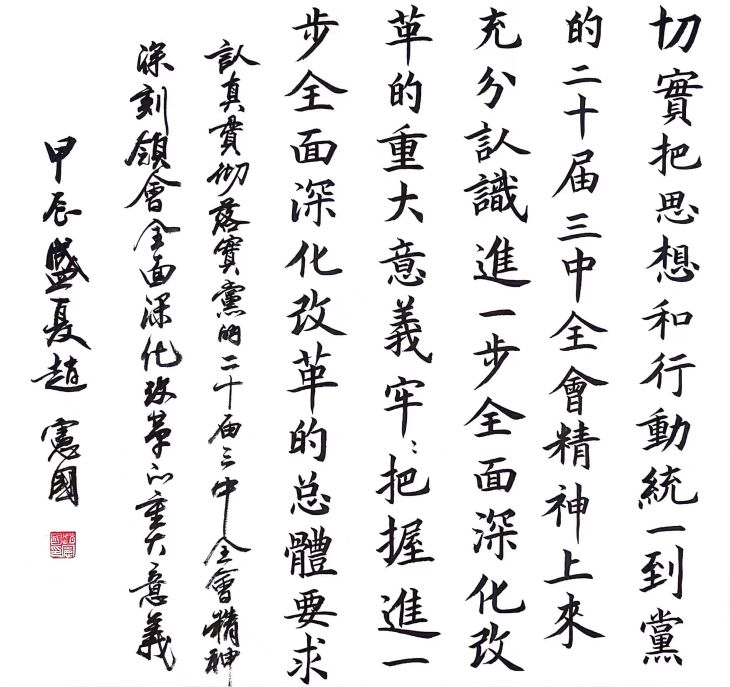 切實把思想和行動統一到黨
的二十届三中全會精神上來
充分認識進一步全面深化改
革的重大意義牢〻把握進一
步全面深化改革的总體要求
認真貫彻落實黨的二十届三中全會精神
深刻領會全面深化改革的重大意義
甲辰盛夏趙憲國